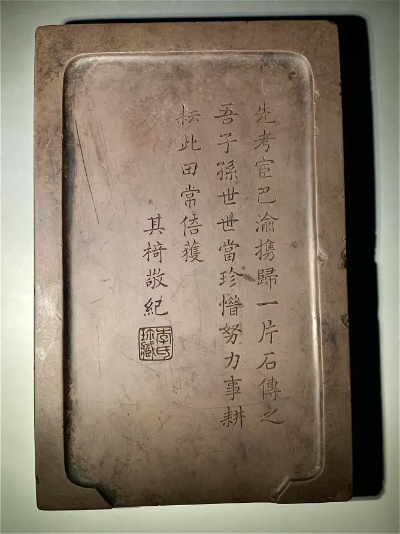 先考宦巴渝携歸一片石傳之
吾子孫世世當珍惜努力事耕
耘此田常倍獲
其椅敬紀
李氏珍藏